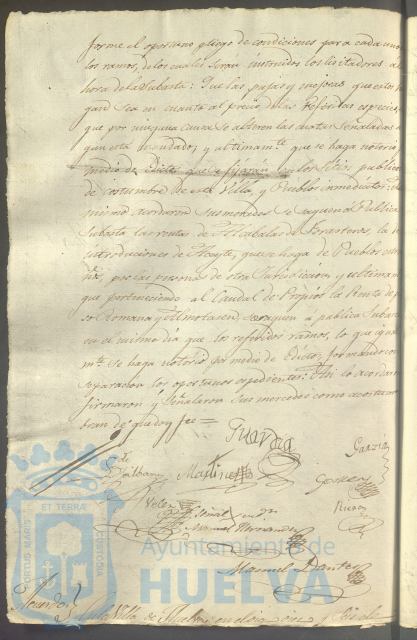 forme el oportuno pliego de condiciones para cada uno
los ramos, de los cuales seran instruidos los licitadores al
hora de la Subasta: Que las pujas y mejoras que estos
gan sea en cuanto al precio de las referidas especies,
que por ninguna causa se alteren las señaladas
que esta mandado; y ultimam.te que se haga notorio
medio de Edictos que se fijarán en los Sitios publicos
de costumbre de esta Villa, y Pueblos inmediatos:
mismo acordaron Sus mercedes se saquen á Publica
Subasta las rentas de Alcabalas de Forasteros, la de
introducciones de Aceyte, que se haga de Pueblos
por las personas de otra Jurisdiccion; y ultimam
que perteneciendo al Caudal de Propios la Renta de
so Romana y Almotasen saquen á publica Subasta
en el mismo dia que los referidos ramos, lo que igual
m.te se haga notorio por medio de Edictos, formandose con
separacion los oportunos expedientes: Asi lo acordaron
firmaron y Señalaron sus mercedes como acostum
bran de que doy fee =
Guarda
Garzia
Martinez
Velez
Manuel Hernandez
Manuel Dante
Acuerdo
En la Villa de Huelva en dia
PORTUS MARIS ET TERRAE CUSTODIA
Ayuntamiento de
HUELVA